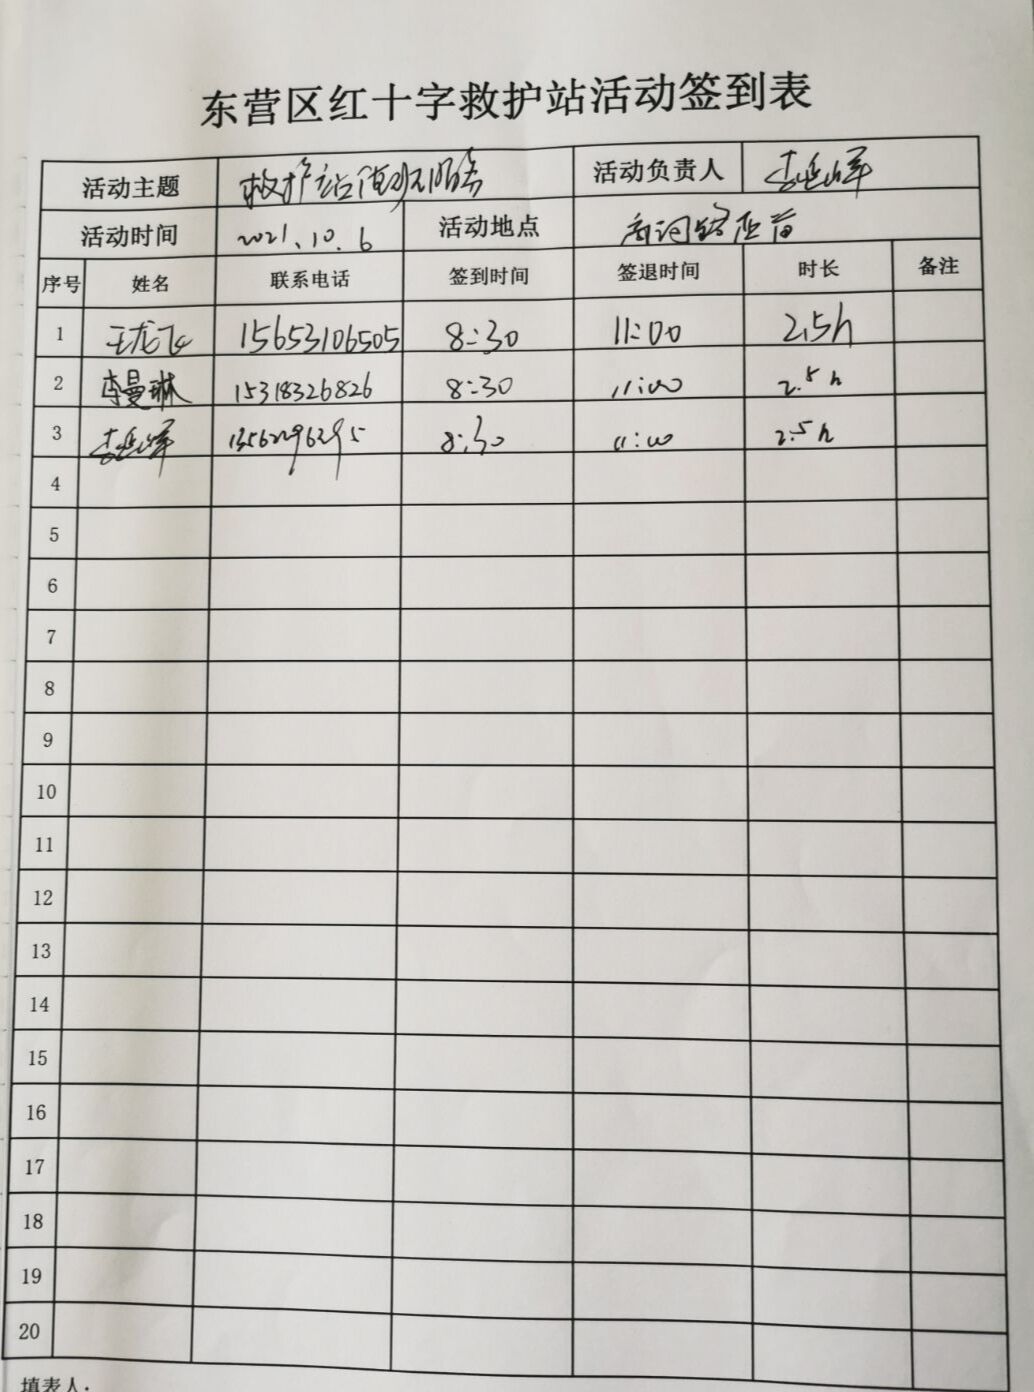 东营区红十字救护站活动签到表
活动主题 救护站值班服务 活动负责人
活动时间 2021.10.6 活动地点
序号 姓名 联系电话 签到时间 签退时间 时长 备注
1 王龙飞 15653106505 8:30 11:00 2.5h
2 李曼琳 15318326826 8:30 11:00 2.5h
3 8:30 11:00 2.5h
4
5
6
7
8
9
10
11
12
13
14
15
16
17
18
19
20
填表人: